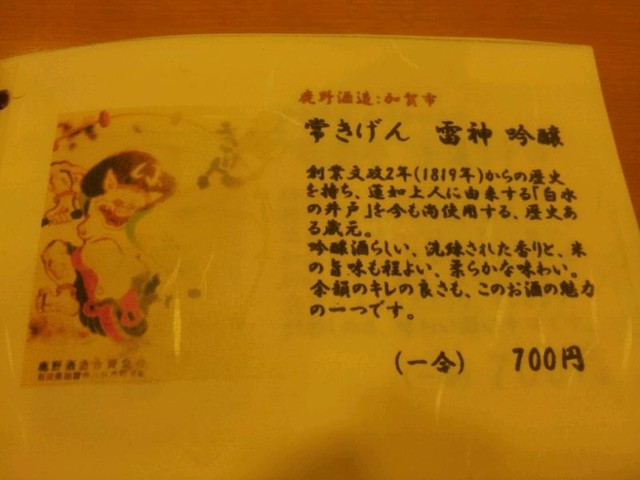 鹿野酒造:加賀市
常きげん 雷神 吟醸
創業文政2年(1819年)からの歴史
を持ち、蓮如上人に由来する「白水
の井戸」を今も尚使用する、歴史あ
る蔵元。
吟醸酒らしい、洗練された香りと、米
の旨味も程よい、柔らかな味わい。
余韻のキレの良さも、このお酒の魅力
の一つです。
(一合) 700円
鹿野酒造合資会社